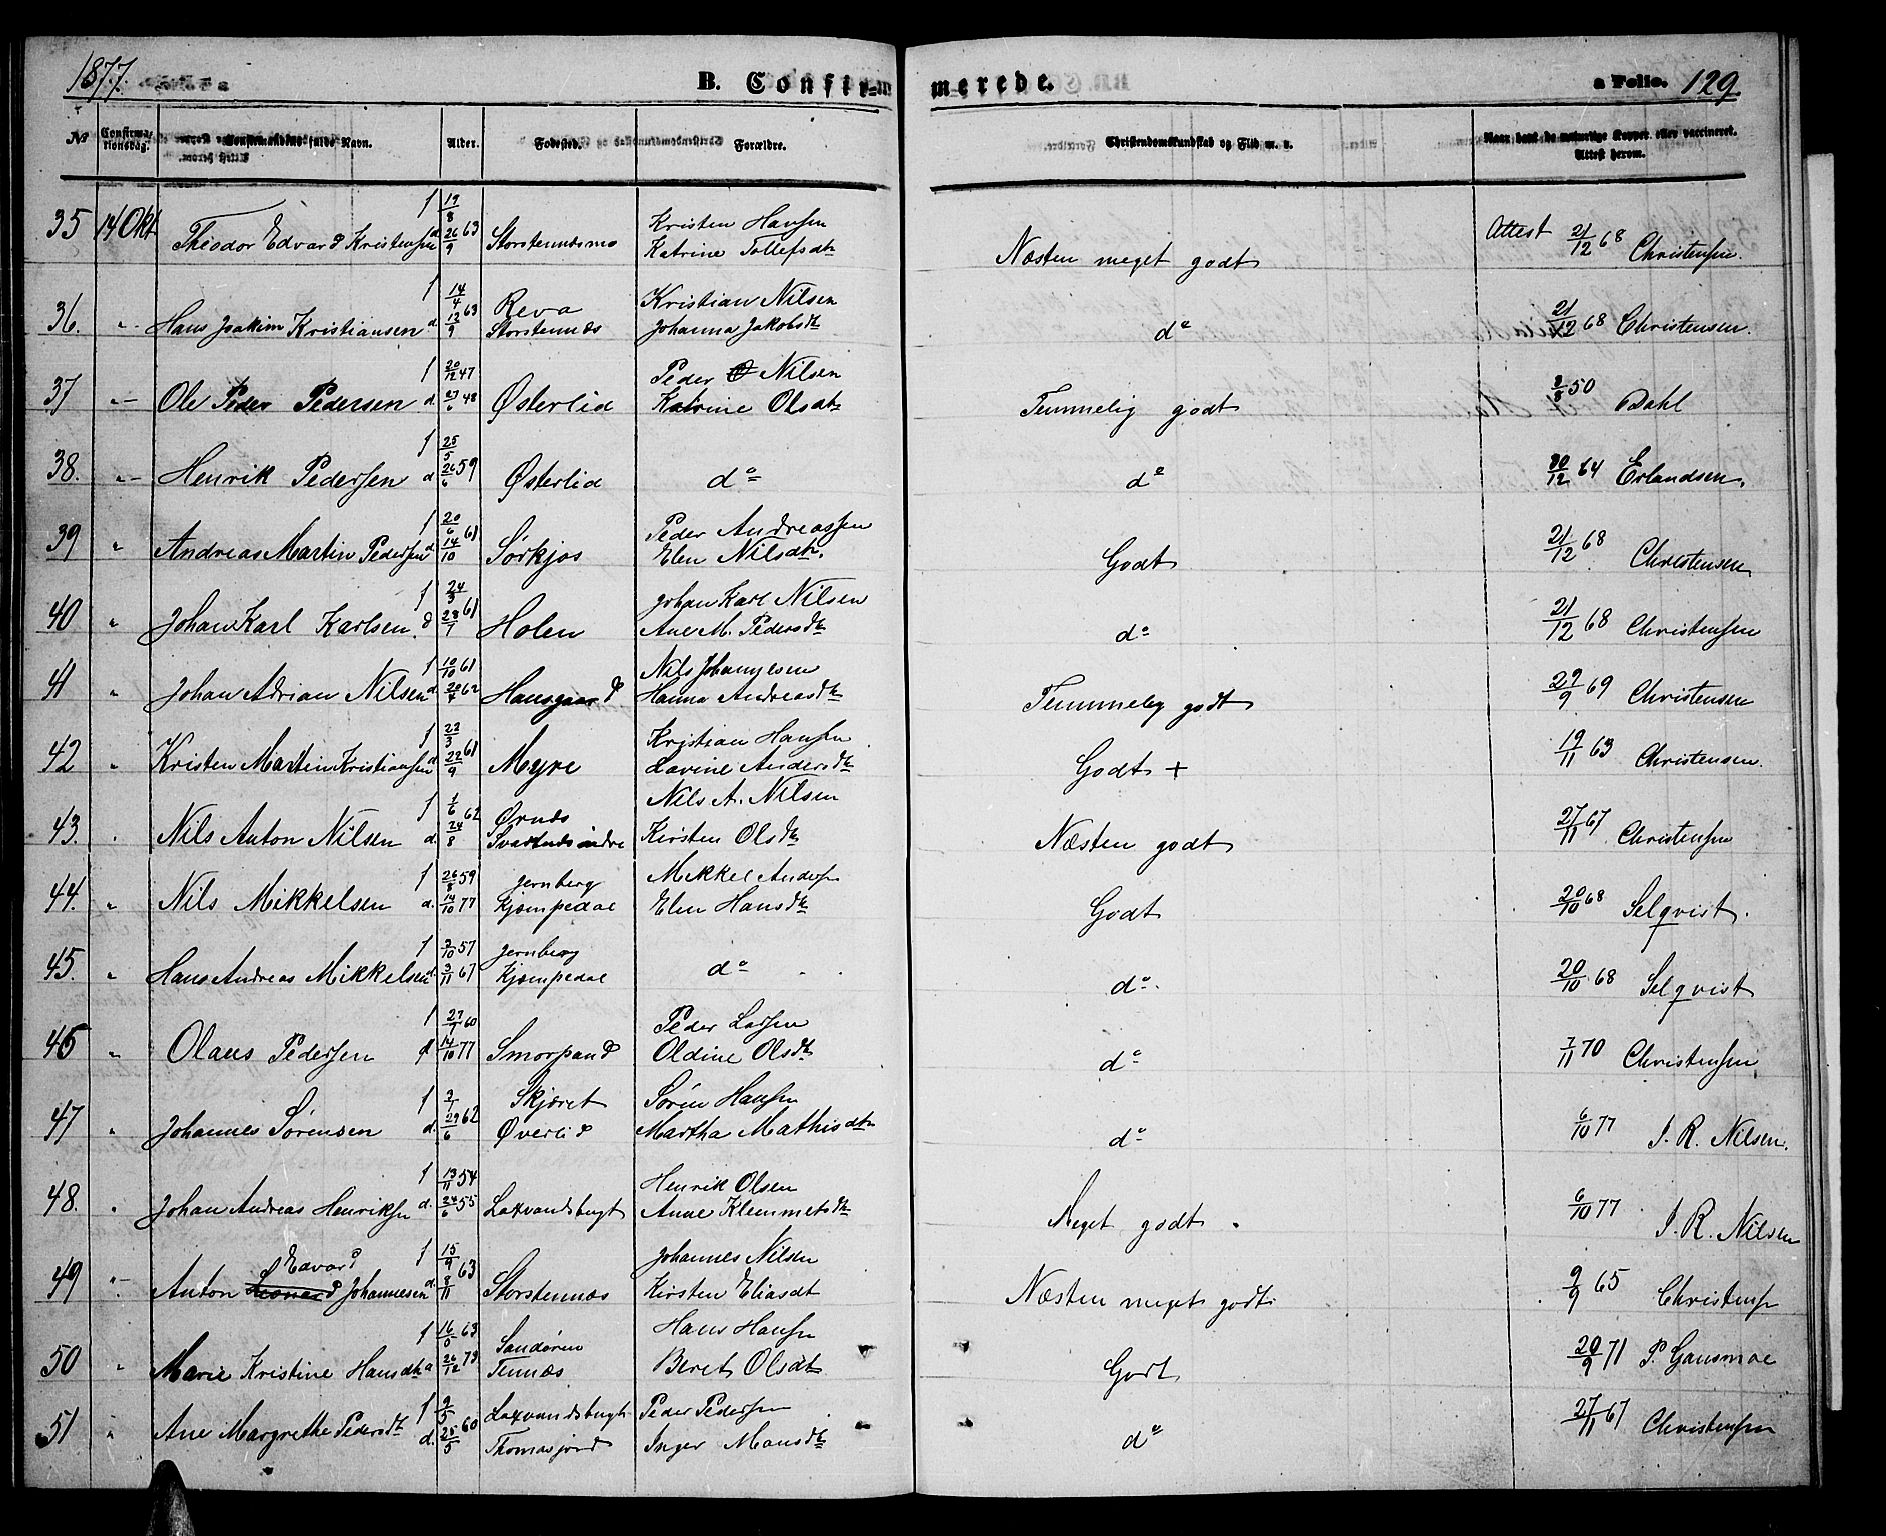 1877.
B. Confirmerede.
a Folio. 129.
No
Confirmationsdag.
Confirmandens fulde Navn.
Alder.
Fødested.
Forældre.
Christendomskundskab og Flid m. v.
Naar havt de naturlige Kopper eller vaccineret. Attest herom.
35 14 Okt Theodor Edvard Kristensen f 19/8 d 26/9 63 Storstennæsmo Kristen Hansen Katrine Tollefsdtr Næsten meget godt Attest 21/12 68 Christensen.
36. " Hans Joakim Kristiansen f 14/4 d. 12/9 63 Reva Storstennæs Kristian Nilsen Johanna Jakobsdtr do 21/12 68 Christensen.
37 " Ole Peder Pedersen f 20/12 47 d 27/6 48 Østerlid Peder Nilsen Katrine Olsdtr Temmelig godt 2/8 50 Dahl
38. " Henrik Pedersen f 25/5 d 26/6 59 Østerlid do do 30/12 64 Erlandsen.
39 " Andreas Martin Pedersen f 20/6 d 14/10 61 Sørkjos Peder Andreassen Elen Nilsdtr. Godt 21/12 68 Christensen
40 " Johan Karl Karlsen. f 24/3 d 28/7 61 Holen Johan Karl Nilsen Ane M. Pedersdtr do 21/12 68 Christensen
41 " Johan Adrian Nilsen f 10/10 61 d. 20/7 62 Hansgaard Nils Johannesen Hanna Andreasdtr Temmelig godt 29/9 69 Christensen
42 " Kristen Martin Kristiansen f 22/3 d 22/9 61 Myre Kristian Hansen Lavine Andersdtr Godt + 19/11 63 Christensen.
43. " Nils Anton Nilsen f 1/6 d. 24/8 62 Ørnæs Svartnæs indre Nils A. Nilsen Kirsten Olsdtr Næsten godt 27/11 67 Christensen
44. " Nils Mikkelsen f 26/8 59 d. 14/10 77 Jernberg Kjempedal Mikkel Anders Elen Hansdtr Godt 20/10 68 Selqvist.
45. " Hans Andreas Mikkelsen f 2/10 57 d 3/11 67 Jernberg Kjempedal do do. 20/10 68 Selqvist
46 " Olaus Pedersen f 27/7 60 14/10 77 Smorpand Peder Larsen Oldine Olsdtr do 7/11 70 Christensen
47 " Johannes Sørensen f 2/1 d. 29/6 62 Skjæret Øverlid Søren Hansen Martha Mathisdtr do 6/10 77 I. R. Nilsen.
48. " Johan Andreas Henriksen f 13/11 54 d. 24/6 55 Laxvandsbugt Henrik Olsen Anne Klemmetsdtr Meget godt. 6/10 77 I. R. Nilsen
49 " Anton Edvard Johannesen f 15/9 d. 8/11 63 Storstennæs Johannes Nilsen Kirsten Eliasdt Næsten meget godt 9/9 65 Christensen
50 " Marie Kristine Hansdtr f 16/ 63 26/12 73 Sandøren Tennæs Hans Hansen Beret Olsdt Godt 20/9 71 P. Gausmoe
51 " Ane Margrethe Pedersdtr f 2/5 d. 25/5 60 Laxvandsbugt Thomasjord Peder Pedersen Inger Monsdtr do 27/11 67 Christensen